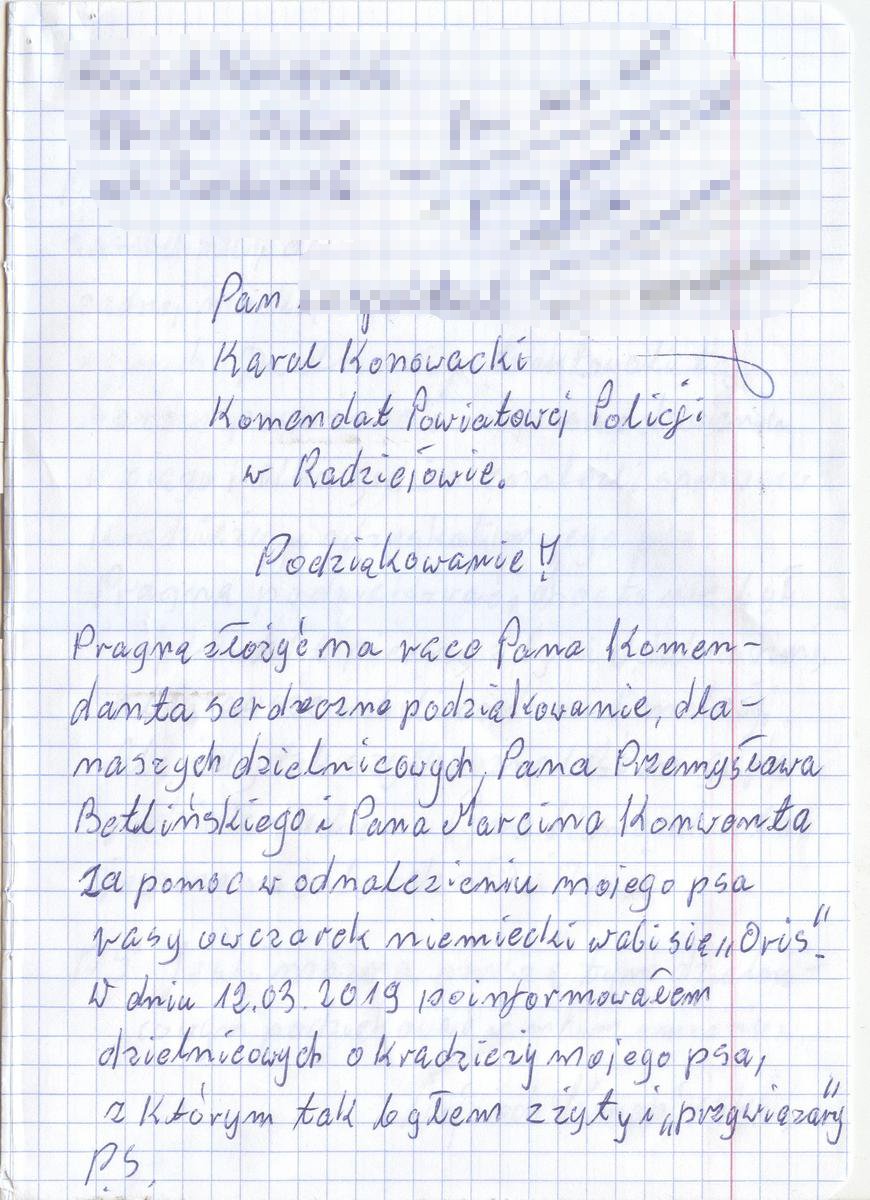 Pan
Karol Konowacki
Komendat Powiatowej Policji
w Radziejowie.
Podziąkowanie!!
Pragną złożyć na ręce Pana Komen-
danta serdeczne podziąkowanie, dla-
naszych dzielnicowych, Pana Przemysława
Betlińskiego i Pana Marcina Konwenta
za pomoc w odnalezieniu mojego psa
rasy owczarek niemiecki wabi się „Oris".
W dniu 12.03.2019 poinformowałem
dzielnicowych o kradzieży mojego psa,
z którym tak byłem zżyty i „przywiązany"
P.S.